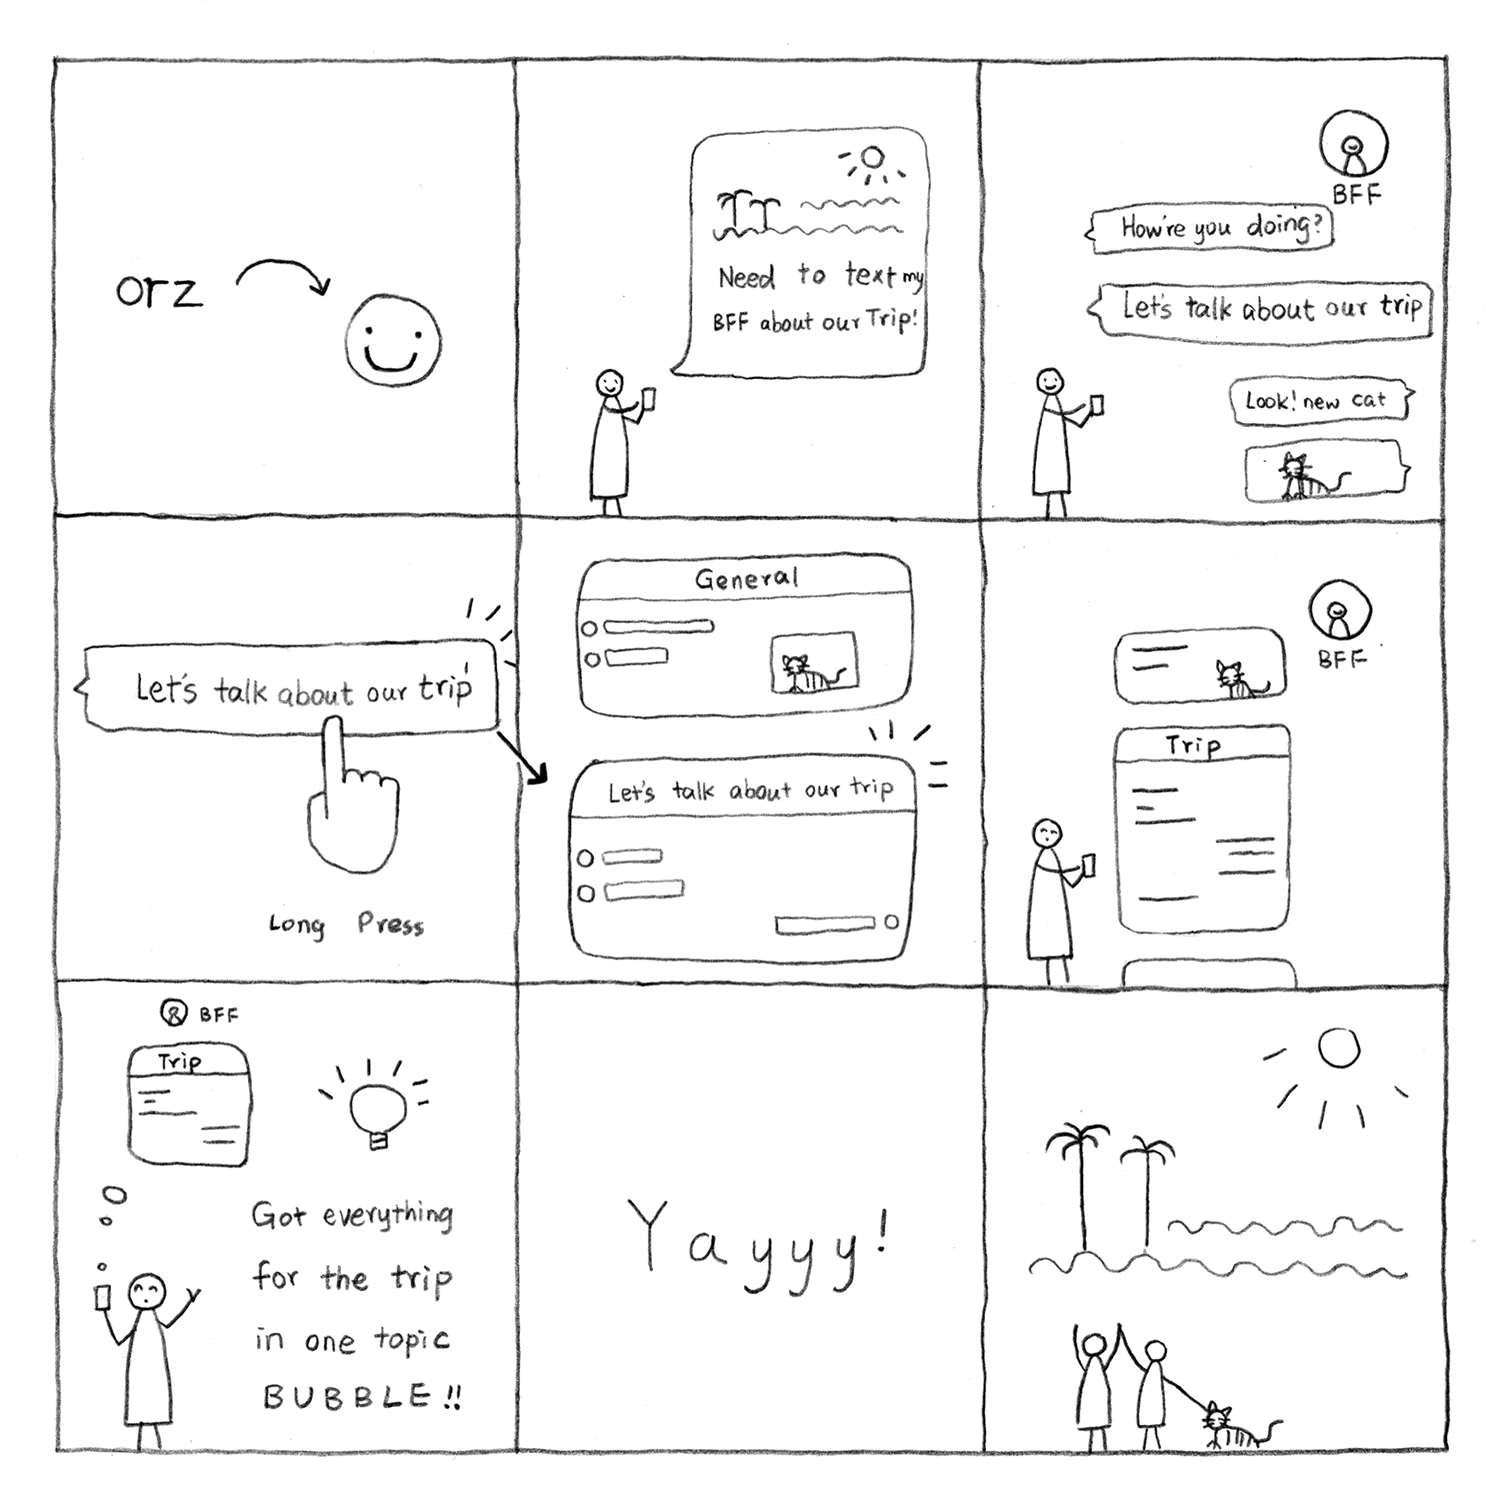 orz
Need to text my
BFF about our Trip!
BFF
How're you doing?
Let's talk about our trip
Look! new cat
Let's talk about our trip
Long Press
General
Let's talk about our trip
BFF
Trip
BFF
Trip
Got everything
for the trip
in one topic
BUBBLE!!
Yayyy!